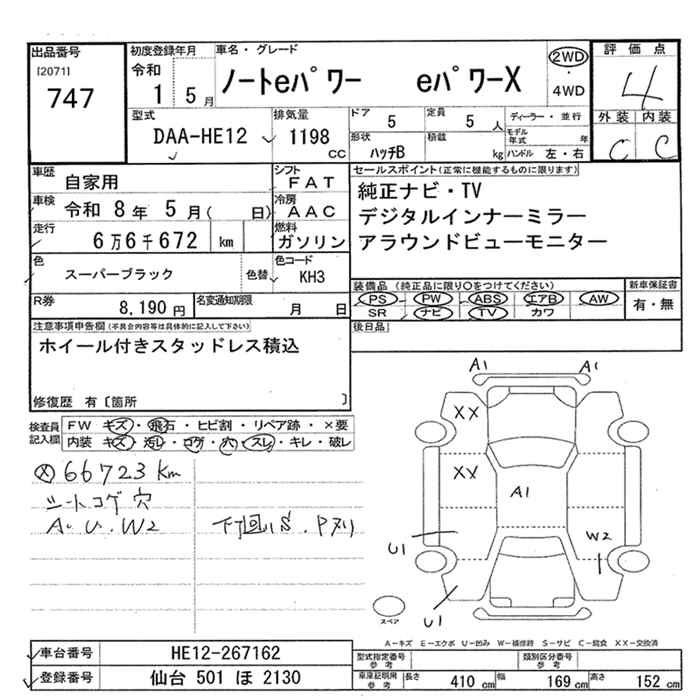 出品番号
[2071]
747
初度登録年月
令和
1 5月
車名・グレード
ノートeパワー eパワーX
2WD
・
4WD
評価点
4
外装 内装
C C
型式
DAA-HE12
排気量
1198
CC
ドア
5
定員
5 人
形状
ハッチB
積載
kg
ディーラー・並行
モデル年式 年
ハンドル 左・右
車歴
自家用
シフト
FAT
車検
令和 8年 5月( 日)
冷房
AAC
走行
6万6千672 km
燃料
ガソリン
色
スーパーブラック
色替
色コード
KH3
R券
8,190円
名変通知期限
月 日
セールスポイント(正常に機能するものに限ります)
純正ナビ・TV
デジタルインナーミラー
アラウンドビューモニター
装備品 (純正品に限り○をつけてください)
PS PW ABS エアB AW
SR ナビ TV カワ
新車保証書
有・無
後日品
注意事項申告欄(不具合内容等は具体的に記入して下さい)
ホイール付きスタッドレス積込
修復歴 有〔箇所 〕
検査員記入欄
FW キズ・飛石・ヒビ割・リペア跡・×要
内装 キズ・汚レ・コゲ・穴・スレ・キレ・破レ
66723km
シートコゲ穴
A・U・W2
下回りS・Pヌリ
A1 A1
XX
XX
A1
U1
W2
U1
スペア
A−キズ E−エクボ U−凹み W−補修跡 S−サビ C−腐食 XX−交換済
車台番号
HE12-267162
登録番号
仙台 501 ほ 2130
型式指定番号
参考
類別区分番号
参考
車庫証明用
参考
長さ 410 cm 幅 169 cm 高さ 152 cm